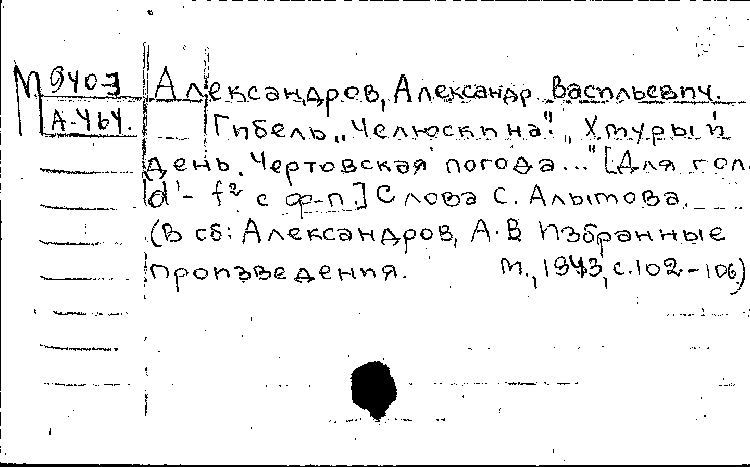 М 9403 Александров, Александр Васильевич.
А-464. Гибель „Челюскина". „Хмурый
день. Чертовская погода..." [Для гол.
d¹- f² с ф-п.] Слова С. Алымова.
(В сб: Александров, А.В Избранные
произведения. М., 1943, с.102-106)